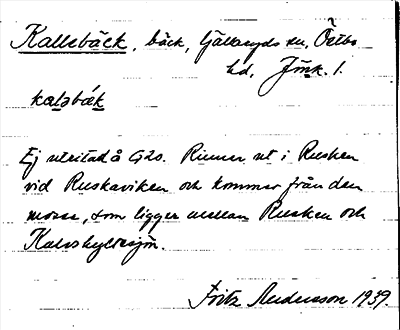 Kallebäck, bäck, Gällaryds sn, Östbo
hd, Jönk. l.
kaləbǽk
Ej utritad å G20. Rinner ut i Rusken
vid Ruskaviken och kommer från den
mosse, som ligger mellan Rusken och
Kalvshyltesjön.
Fritz Andersson 1939.